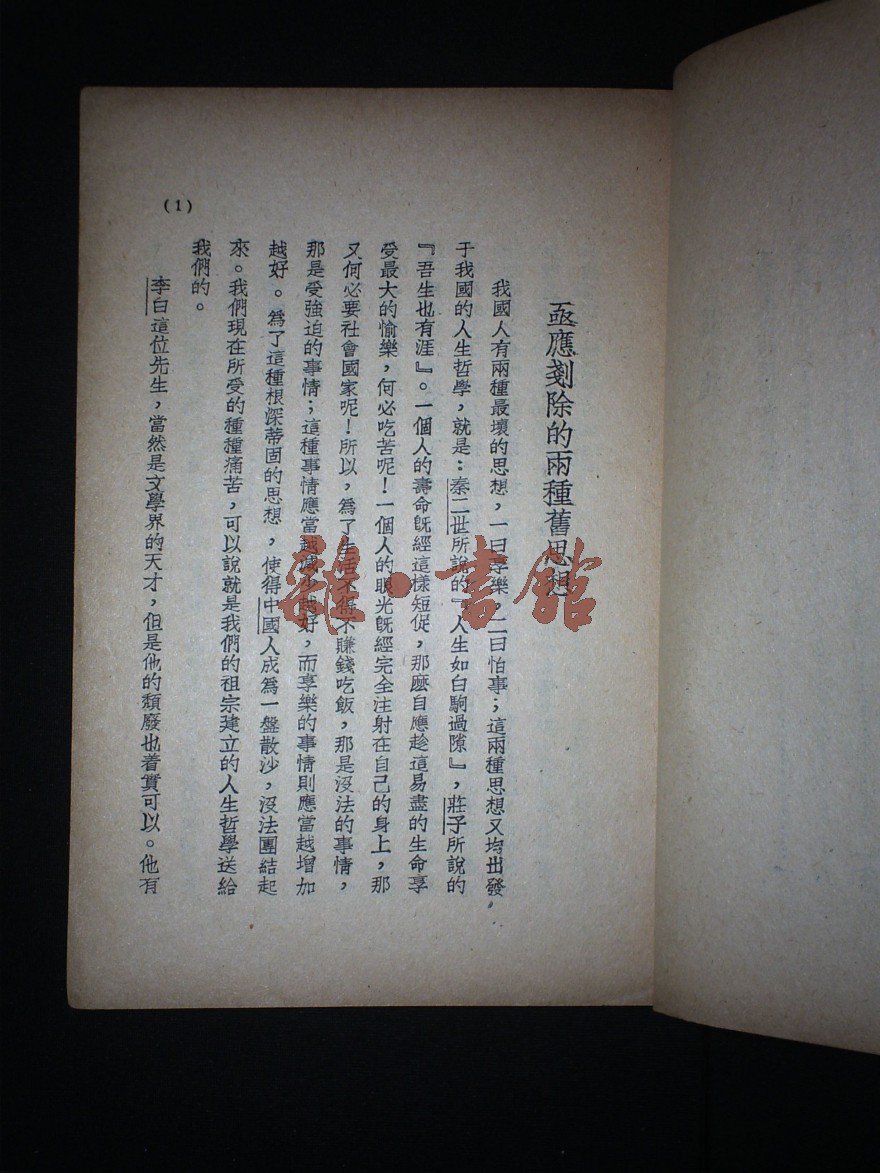 亟應剗除的兩種舊思想
我國人有兩種最壞的思想，一曰享樂，二曰怕事；這兩種思想又均出發
于我國的人生哲學，就是：秦二世所說的『人生如白駒過隙』，莊子所說的
『吾生也有涯』。一個人的壽命旣經這樣短促，那麽自應趁這易盡的生命享
受最大的愉樂，何必吃苦呢！一個人的眼光旣經完全注射在自己的身上，那
又何必要社會國家呢！所以，爲了生活不得不賺錢吃飯，那是沒法的事情，
那是受強迫的事情；這種事情應當越減少越好，而享樂的事情則應當越增加
越好。爲了這種根深蒂固的思想，使得中國人成爲一盤散沙，沒法團結起
來。我們現在所受的種種痛苦，可以說就是我們的祖宗建立的人生哲學送給
我們的。
李白這位先生，當然是文學界的天才，但是他的頹廢也着實可以。他有
(1)
雜·書館